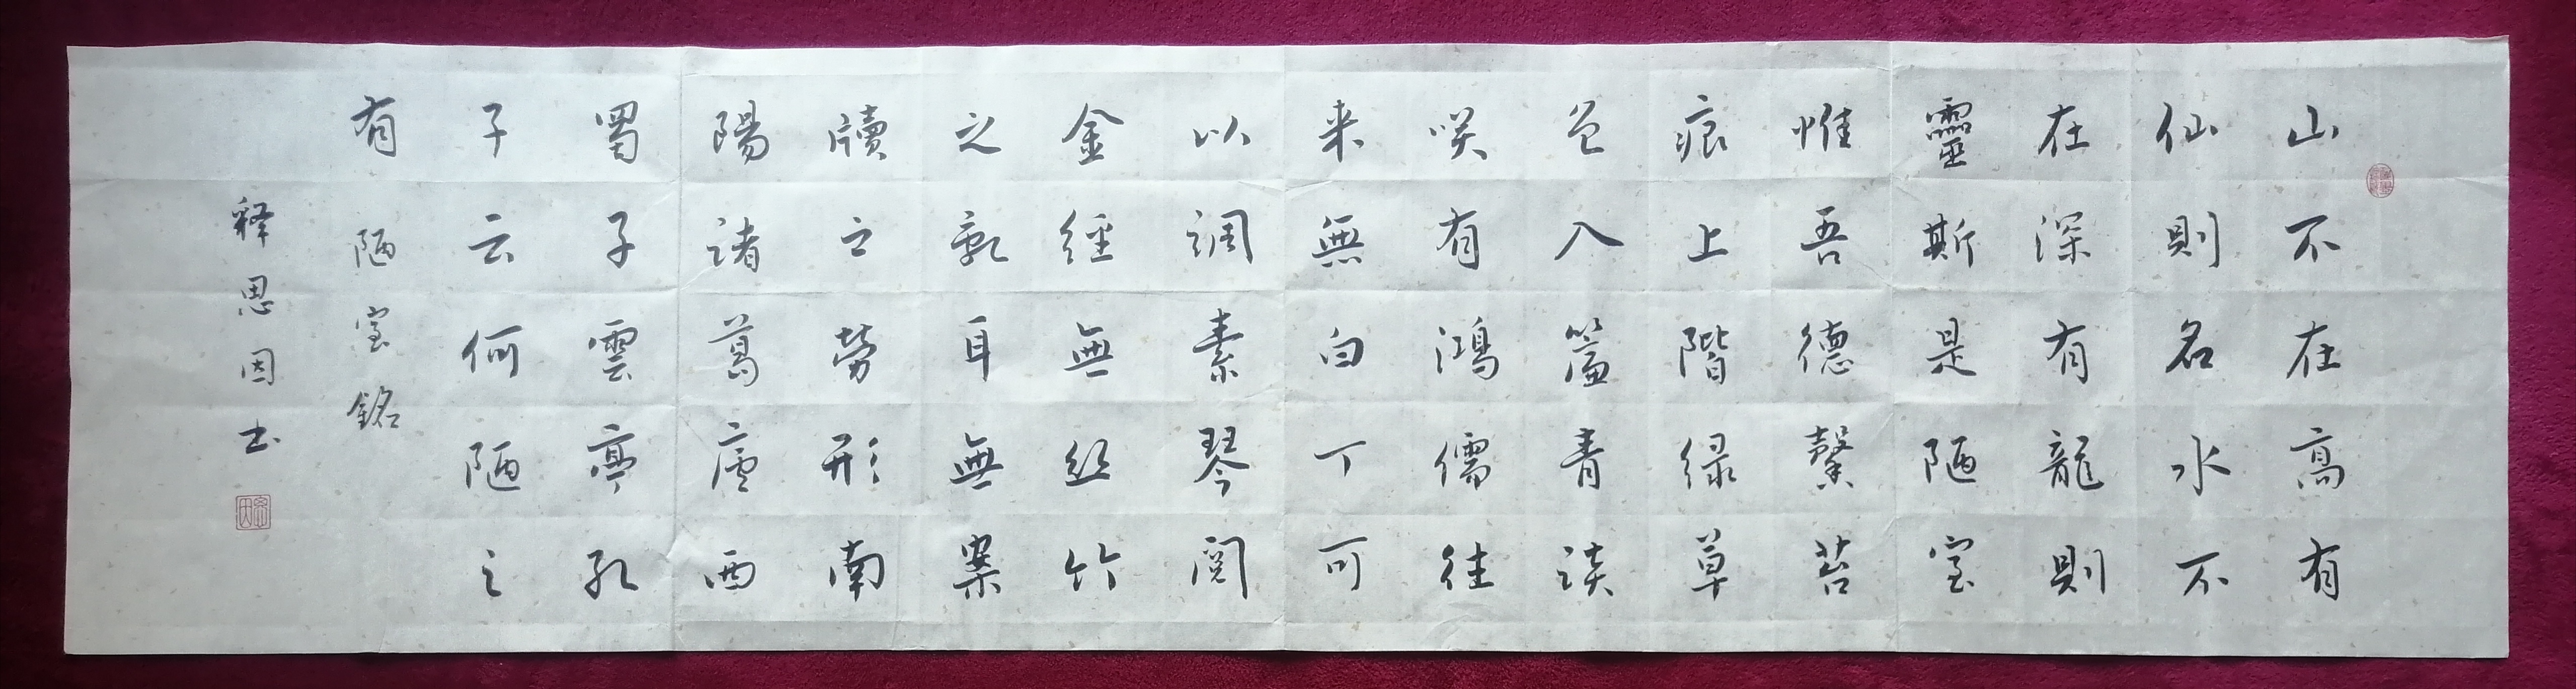 山不在高有
仙則名水不
在深有龍則
靈斯是陋室
惟吾德馨苔
痕上階绿草
色入簾青談
咲有鴻儒往
来無白丁可
以調素琴閱
金經無丝竹
之亂耳無案
牘之勞形南
陽諸葛廬西
蜀子雲亭孔
子云何陋之
有 陋室銘
释思因书
思因